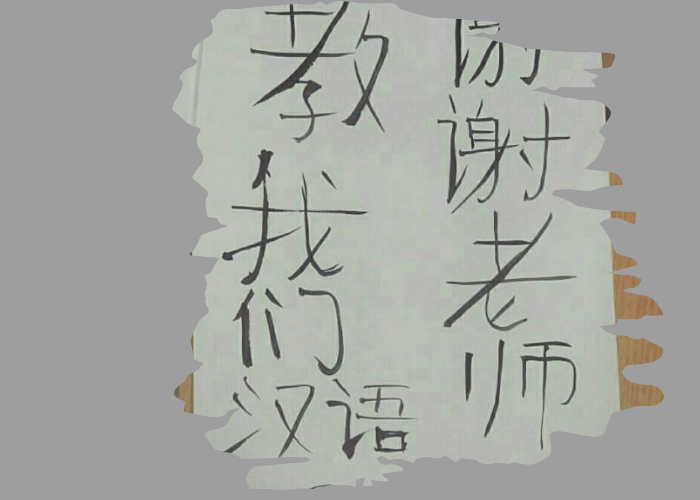 谢谢老师
教我们汉语